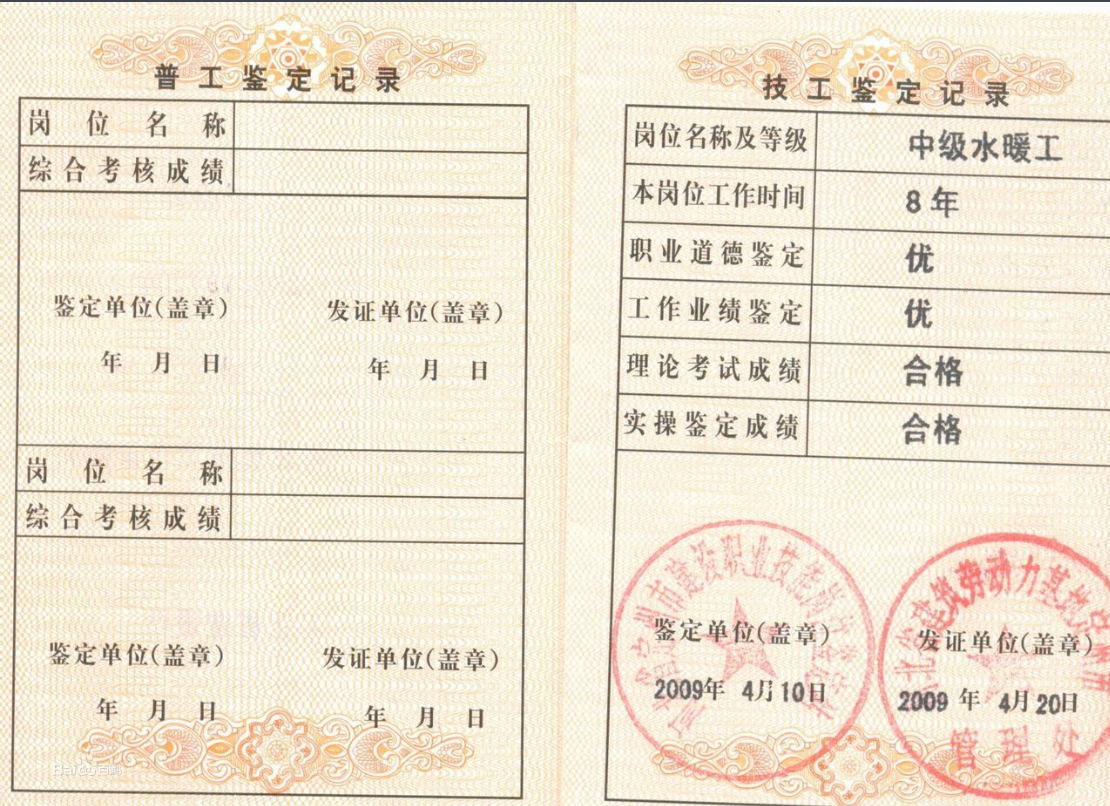 普工鉴定记录
岗位名称
综合考核成绩
鉴定单位(盖章) 发证单位(盖章)
年 月 日 年 月 日
岗位名称
综合考核成绩
鉴定单位(盖章) 发证单位(盖章)
年 月 日 年 月 日
技工鉴定记录
岗位名称及等级 中级水暖工
本岗位工作时间 8年
职业道德鉴定 优
工作业绩鉴定 优
理论考试成绩 合格
实操鉴定成绩 合格
市建设职业技能
建筑劳动力基地
鉴定单位(盖章) 发证单位(盖章)
2009年 4月10日 2009年 4月20日
管理处